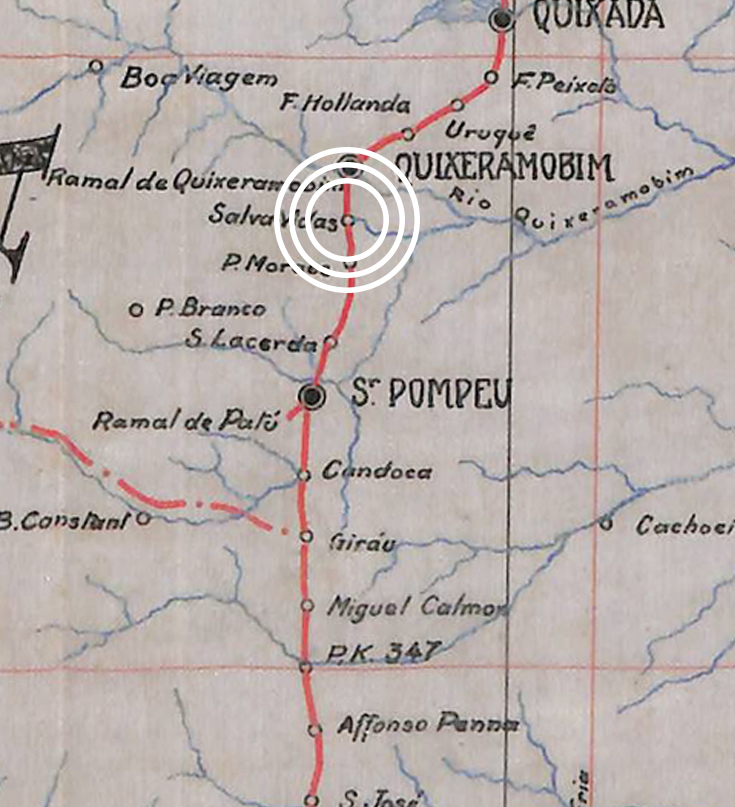 QUIXADÁ
Boa Viagem
F. Peixoto
F. Hollanda
Uruquê
QUIXERAMOBIM
Ramal de Quixeramobim
Rio Quixeramobim
Salva Vidas
P. Moraes
P. Branco
S. Lacerda
Sr. POMPEU
Ramal de Patú
Candoca
B. Constant
Cachoei
Giráu
Miguel Calmon
P.K. 347
Affonso Penna
S. José
ria